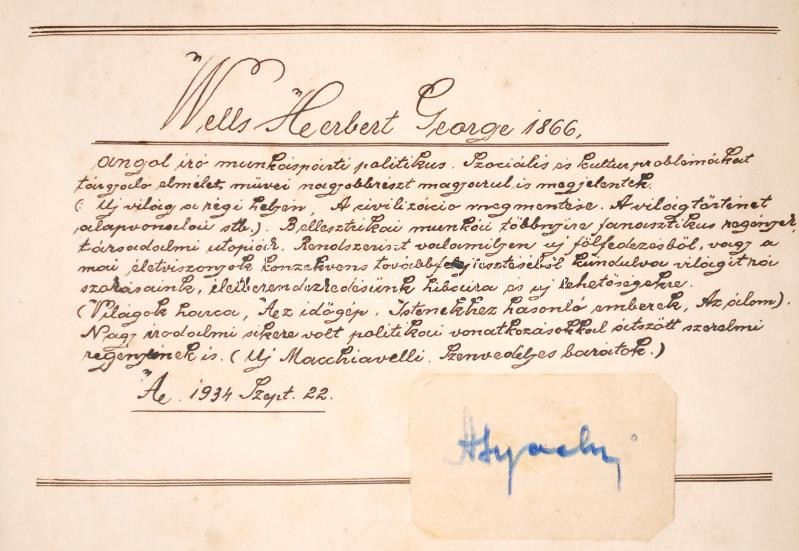 Wells Herbert George 1866,
angol író munkáspárti politikus. Szociális és kultur problémákat
tárgyaló elmélet, művei nagyobbrészt magyarul is megjelentek.
(Uj világ a régi helyén, A civilizáció megmentése. A világtörténet
alapvonalai stb.). Bellesztrikai munkái többnyire fanasztikus regények,
társadalmi utopiák. Rendszerint valamilyen uj fölfedezésből, vagy a
mai életviszonyok konzekvens továbbfejlesztéséből kiindulva világit rá
szokásaink, életberendezkedésünk hibáira és uj lehetőségekre.
(Világok harca, Az időgép. Istenekhez hasonló emberek, Az álom).
Nagy irodalmi sikere volt politikai vonatkozásokkal átszőtt szerelmi
regényeinek is. (Uj Macchiavelli. Szenvedélyes barátok.)
Ae. 1934 Szept. 22.